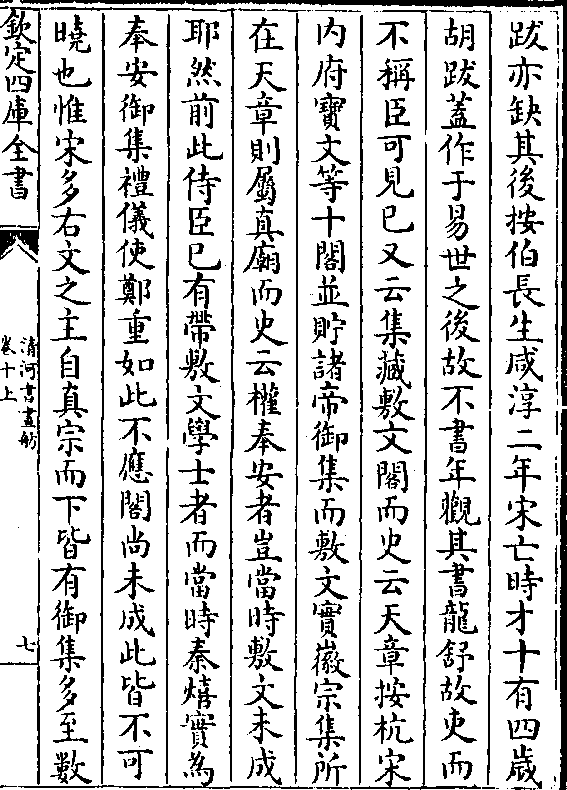 跋亦缺其後按伯長生咸淳二年宋亡時才十有四歲
胡跋蓋作于易世之後故不書年觀其書龍舒故吏而
不稱臣可見已又云集藏敷文閣而史云天章按杭宋
内府寶文等十閣並貯諸帝御集而敷文實徽宗集所
在天章則屬真廟而史云權奉安者豈當時敷文未成
耶然前此侍臣已有帶敷文學士者而當時秦熺實為
奉安御集禮儀使鄭重如此不應閣尚未成此皆不可
曉也惟宋多右文之主自真宗而下皆有御集多至數
欽定四庫全書
清河書畫舫
卷十上
七